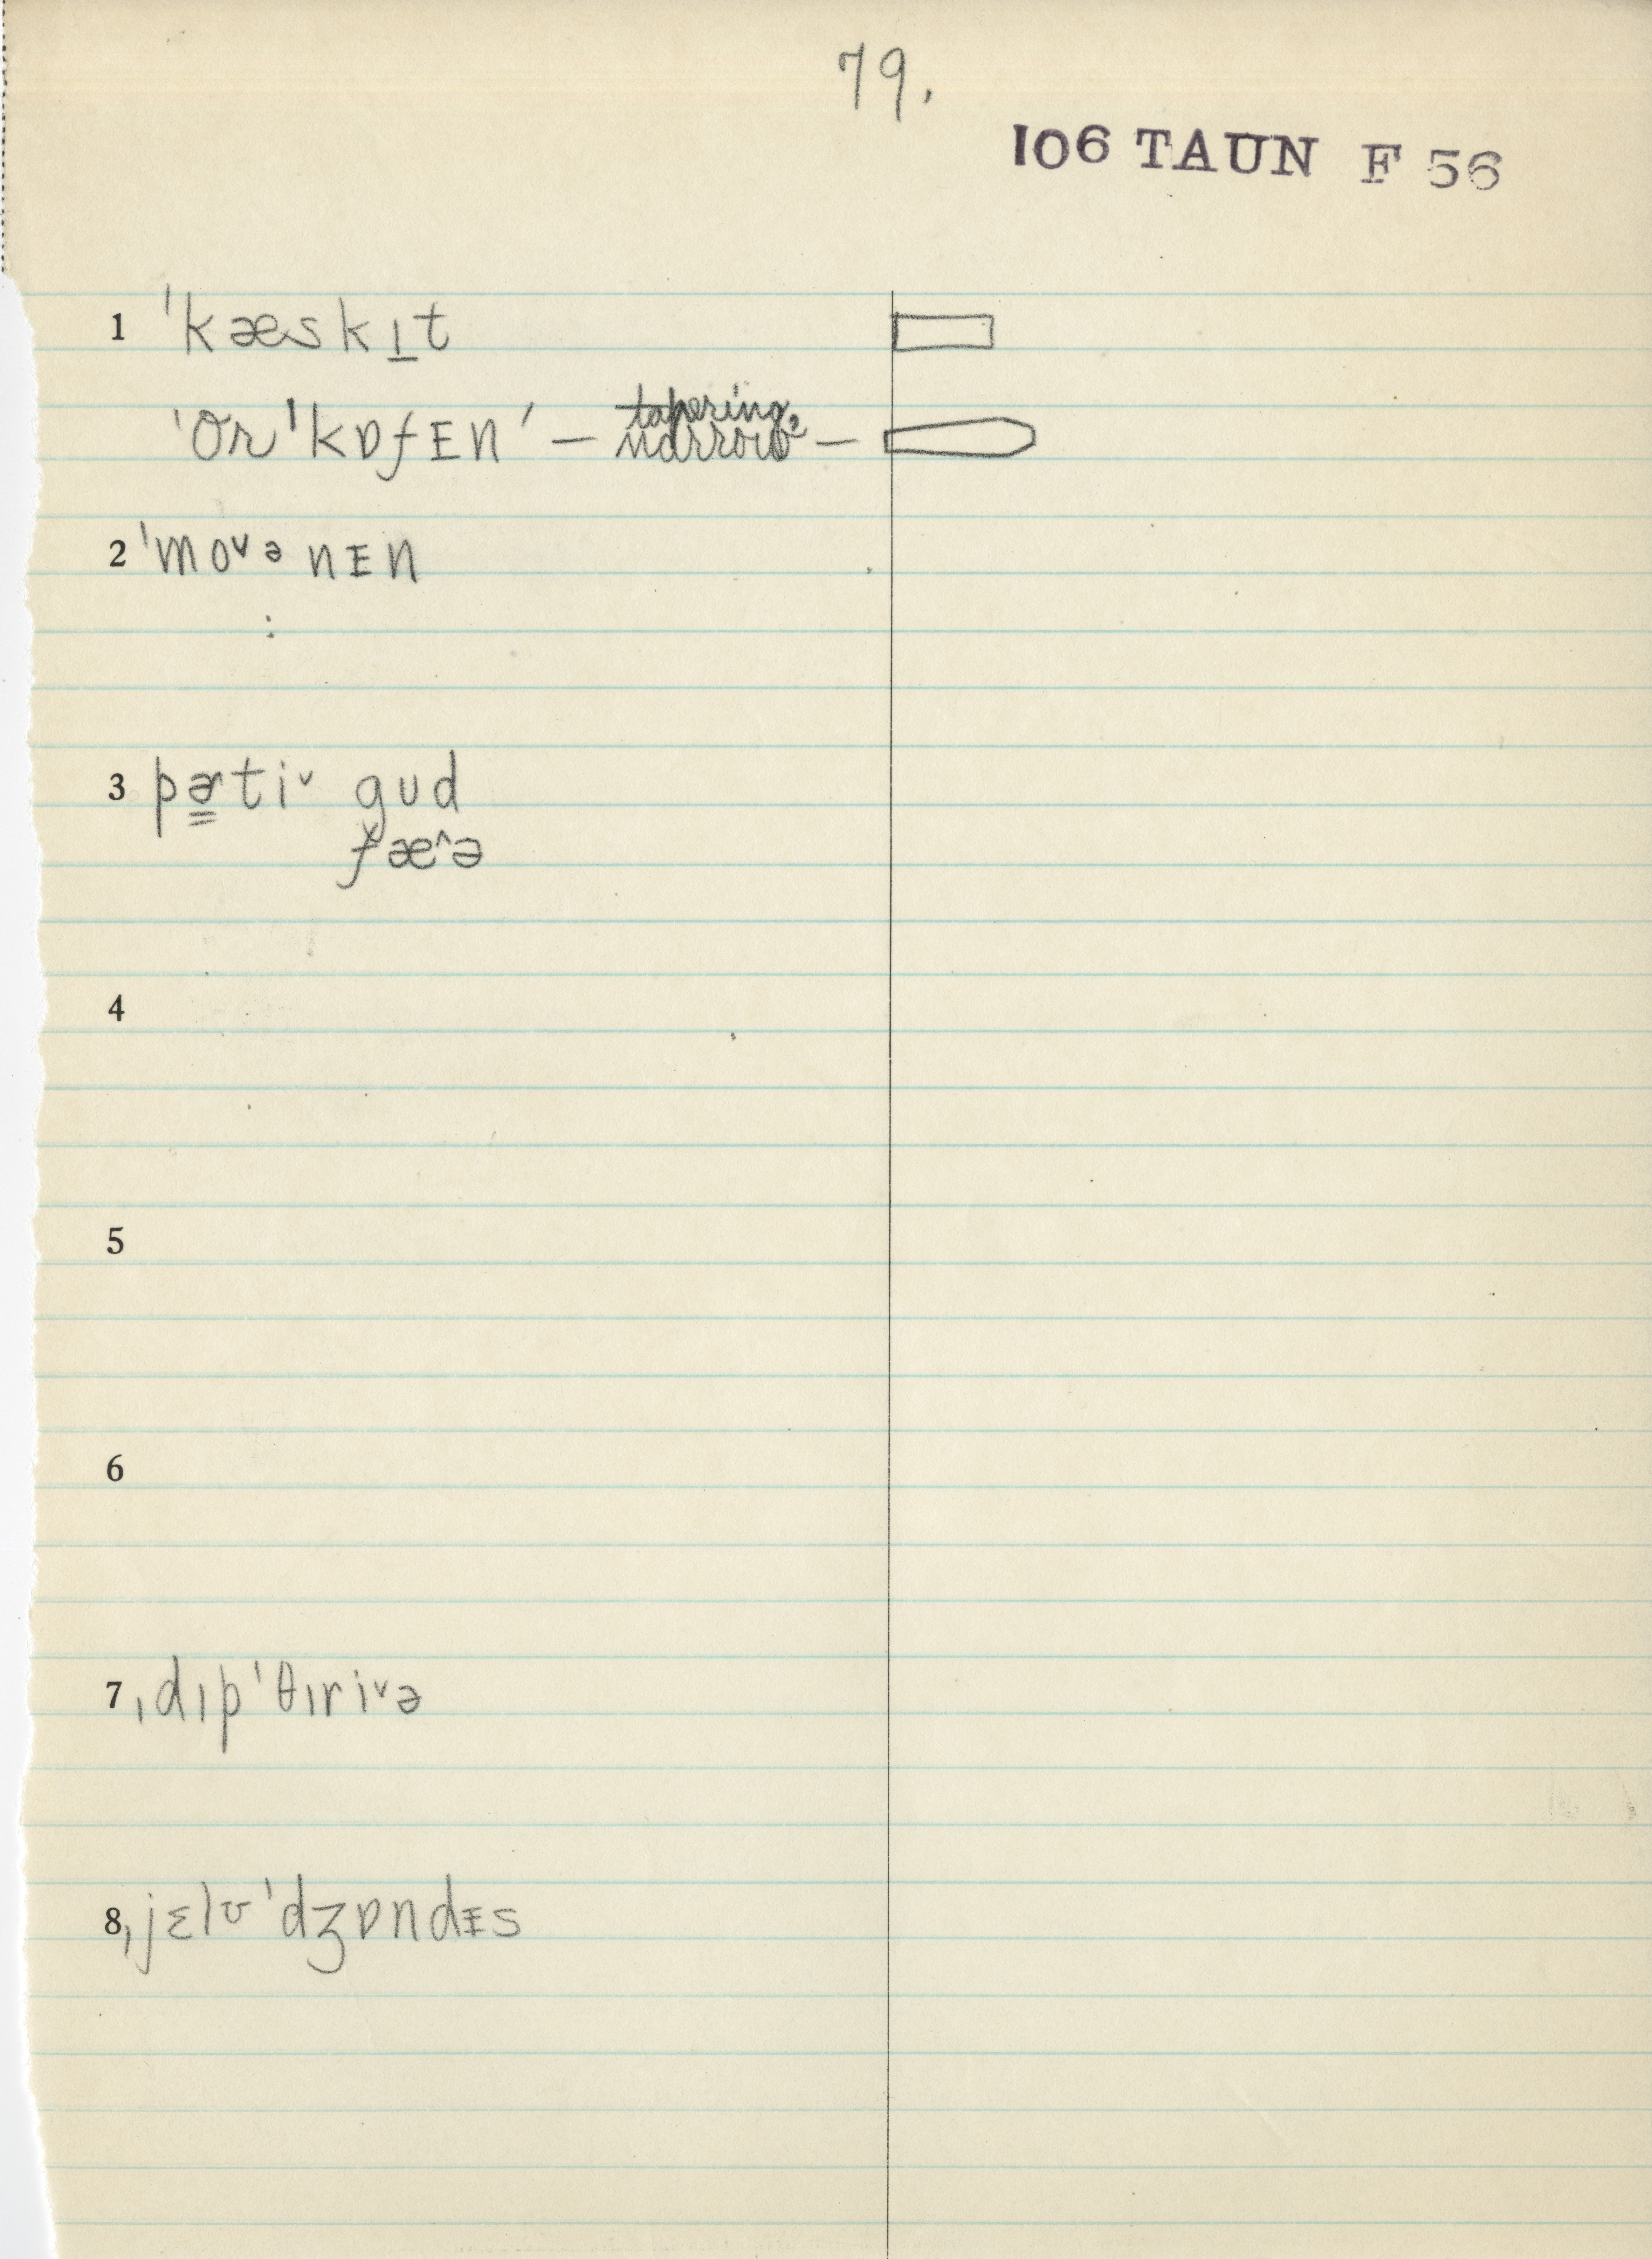 79.
106 TAUN F 56
1 ˈkæskɪ̠t
ˈOrˈkɒfᵻnˈ — tapering, narrow —
2 ˈmo˅ə nᵻn
3 pɚ̳ti˅ gud
fæ^ə
4
5
6
7 ˌdɪpˈθɪri˅ə
8 ˌjɛlʊˈdʒɒndᵻs